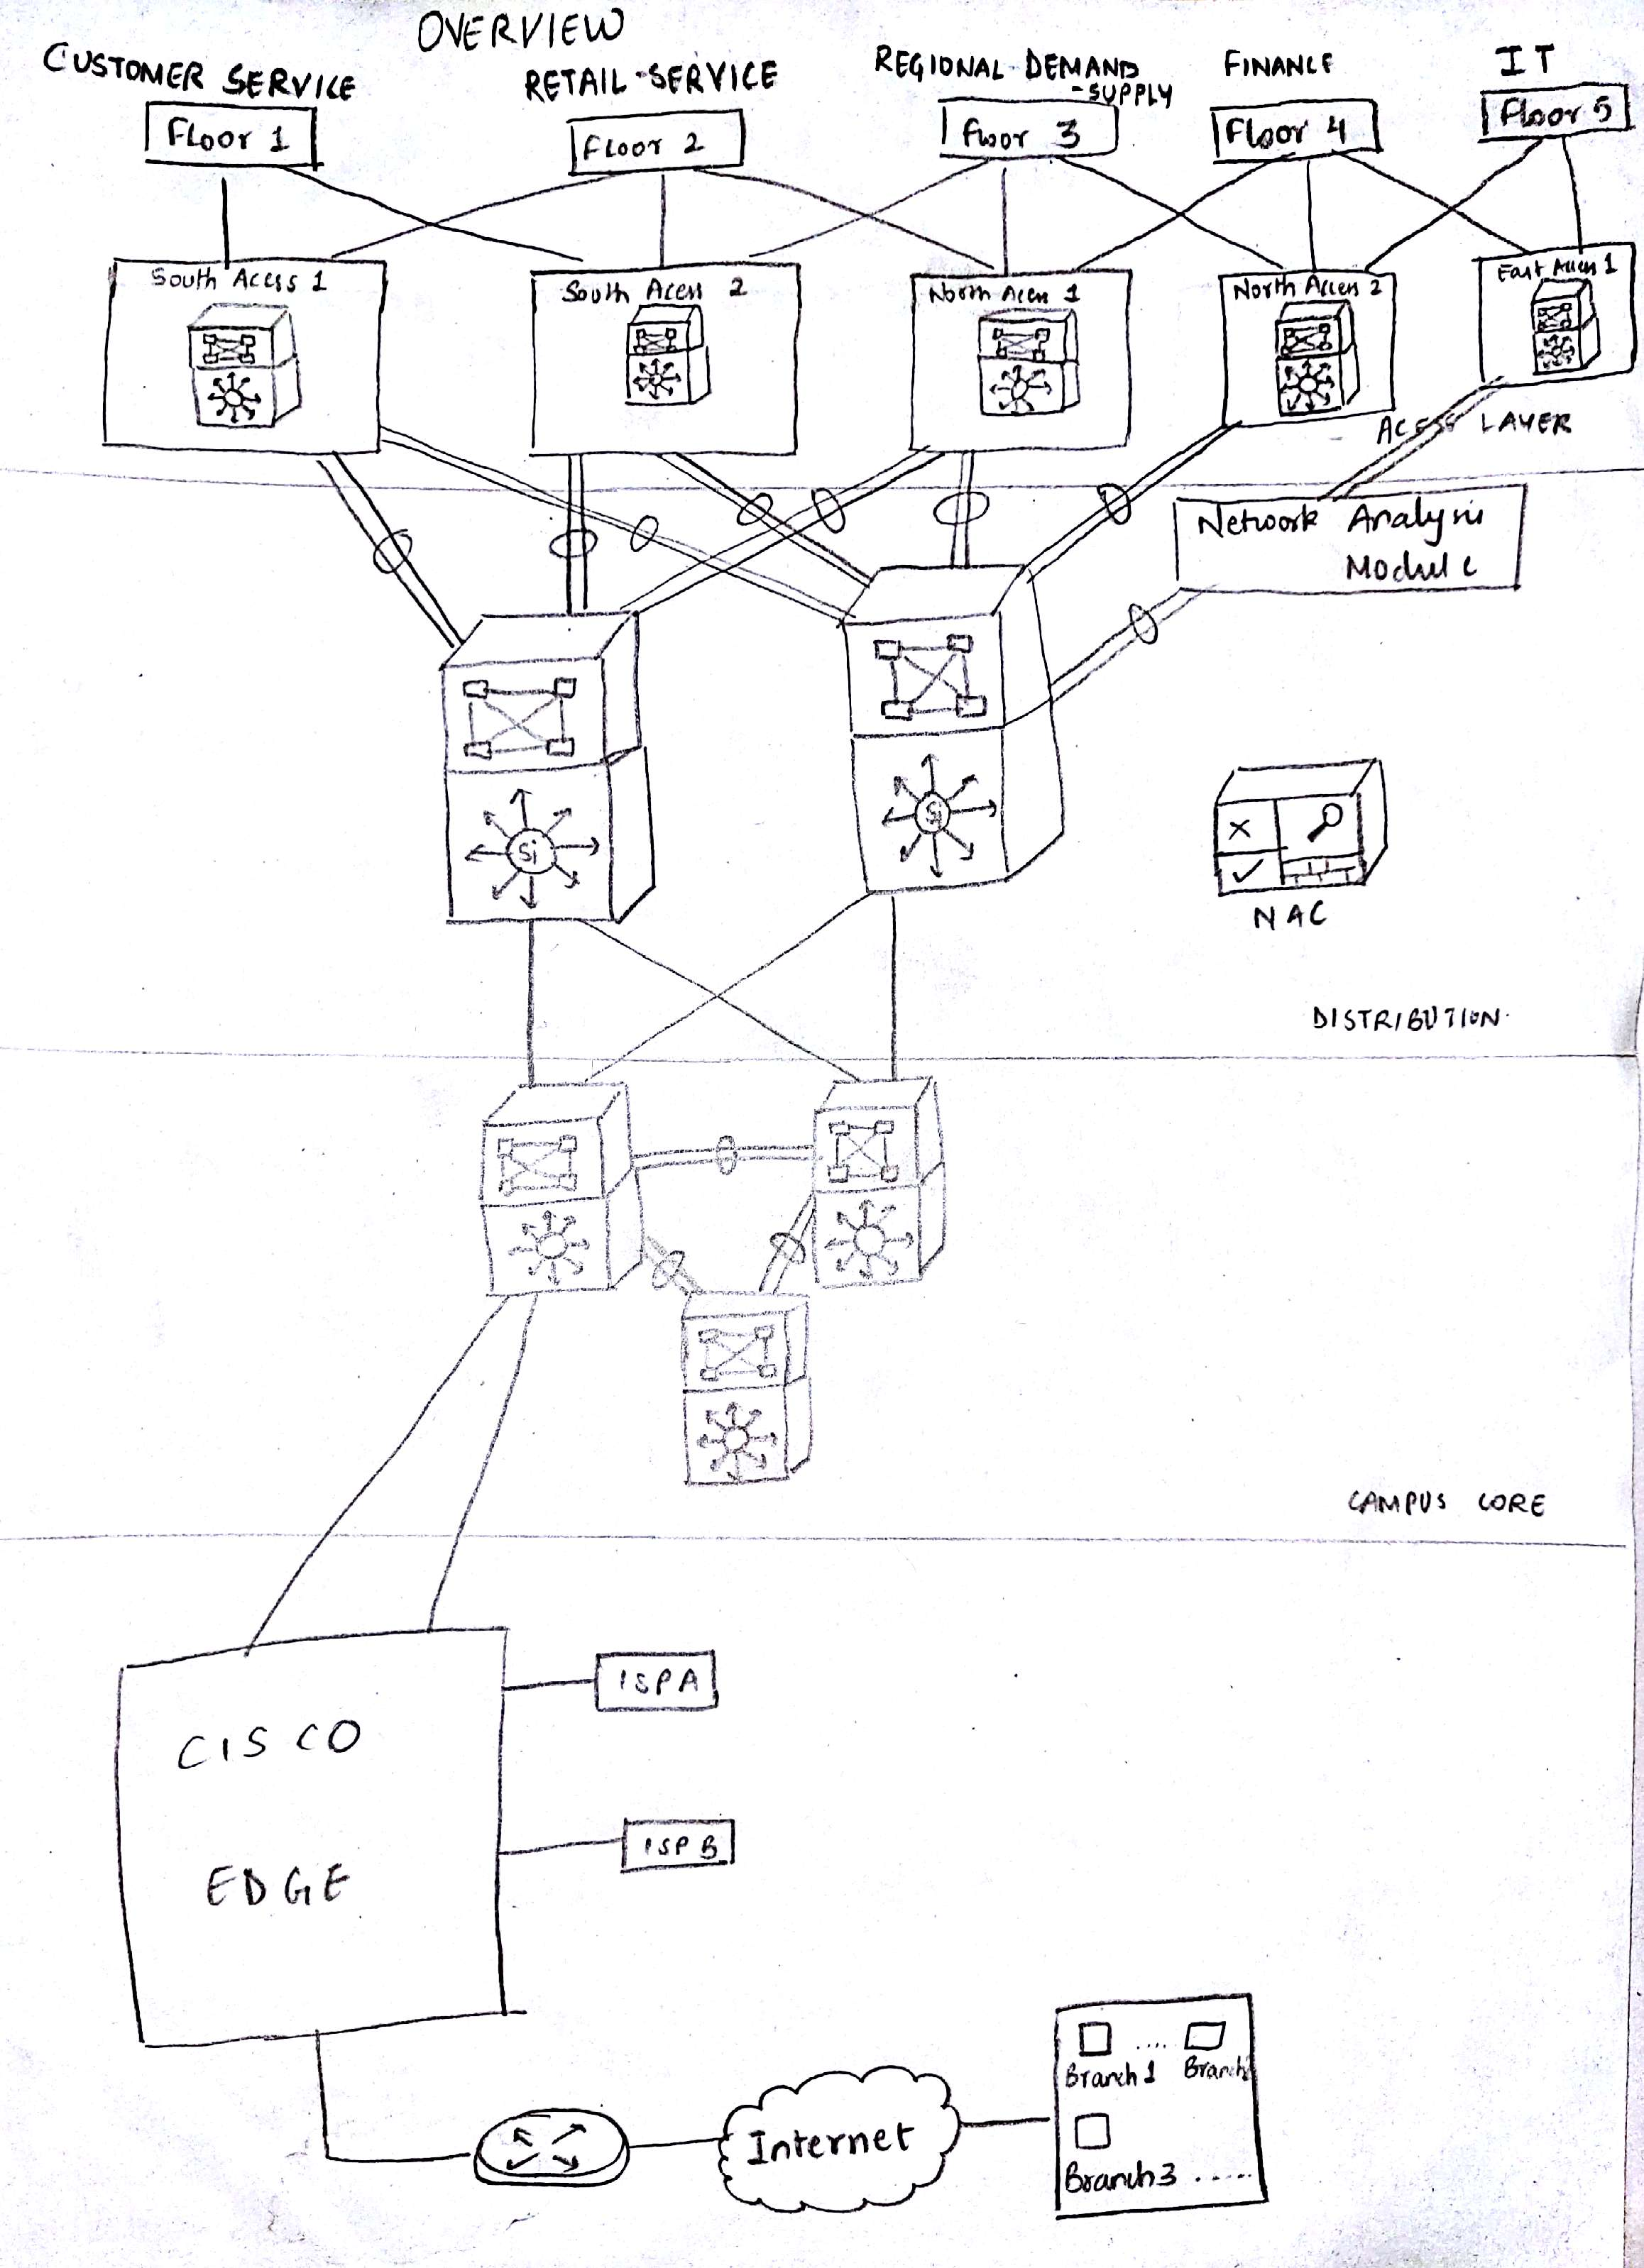 OVERVIEW
CUSTOMER SERVICE
RETAIL-SERVICE
REGIONAL DEMAND
-SUPPLY
FINANCE
IT
Floor 1
Floor 2
Floor 3
Floor 4
Floor 5
South Access 1
South Access 2
North Access 1
North Access 2
East Access 1
ACESS LAYER
Network Analysis
Module
Si
Si
NAC
DISTRIBUTION
CAMPUS CORE
CISCO
EDGE
ISP A
ISP B
Internet
Branch 1 .... Branch
Branch 3 ......